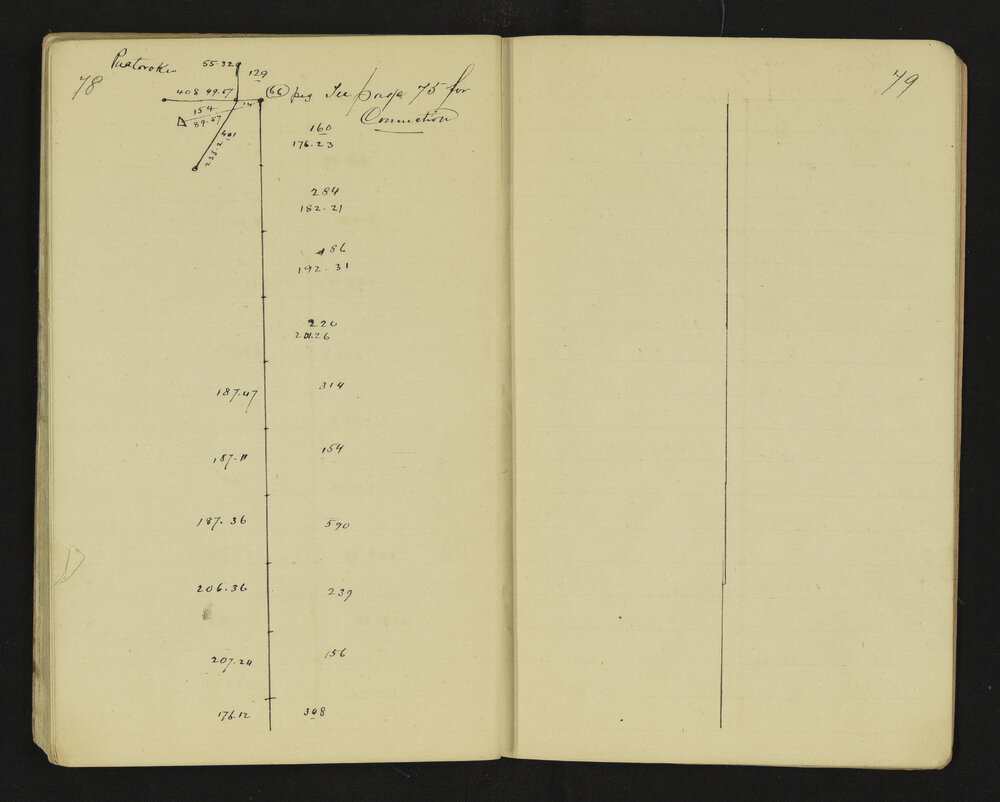 78
Puatoroku 55.32
129
408 99.57
(66) peg See page 75 for
Connection
154
89.57
401
233.2
160
176.23
284
182.21
186
192.31
220
201.26
187.47 314
187.11 154
187.36 590
206.36 239
207.24 156
176.12 308
79